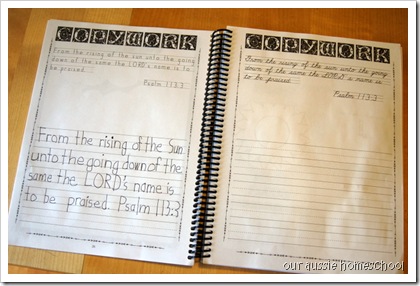 COPYWORK
From the rising of the sun unto the going
down of the same the LORD's name is to be
praised.
Psalm 113:3
From the rising of the Sun
unto the going down of the
same the LORD's name is
to be praised. Psalm 113:3
COPYWORK
From the rising of the sun unto the going
down of the same the LORD's name is
to be praised.
Psalm 113:3
our aussie homeschool